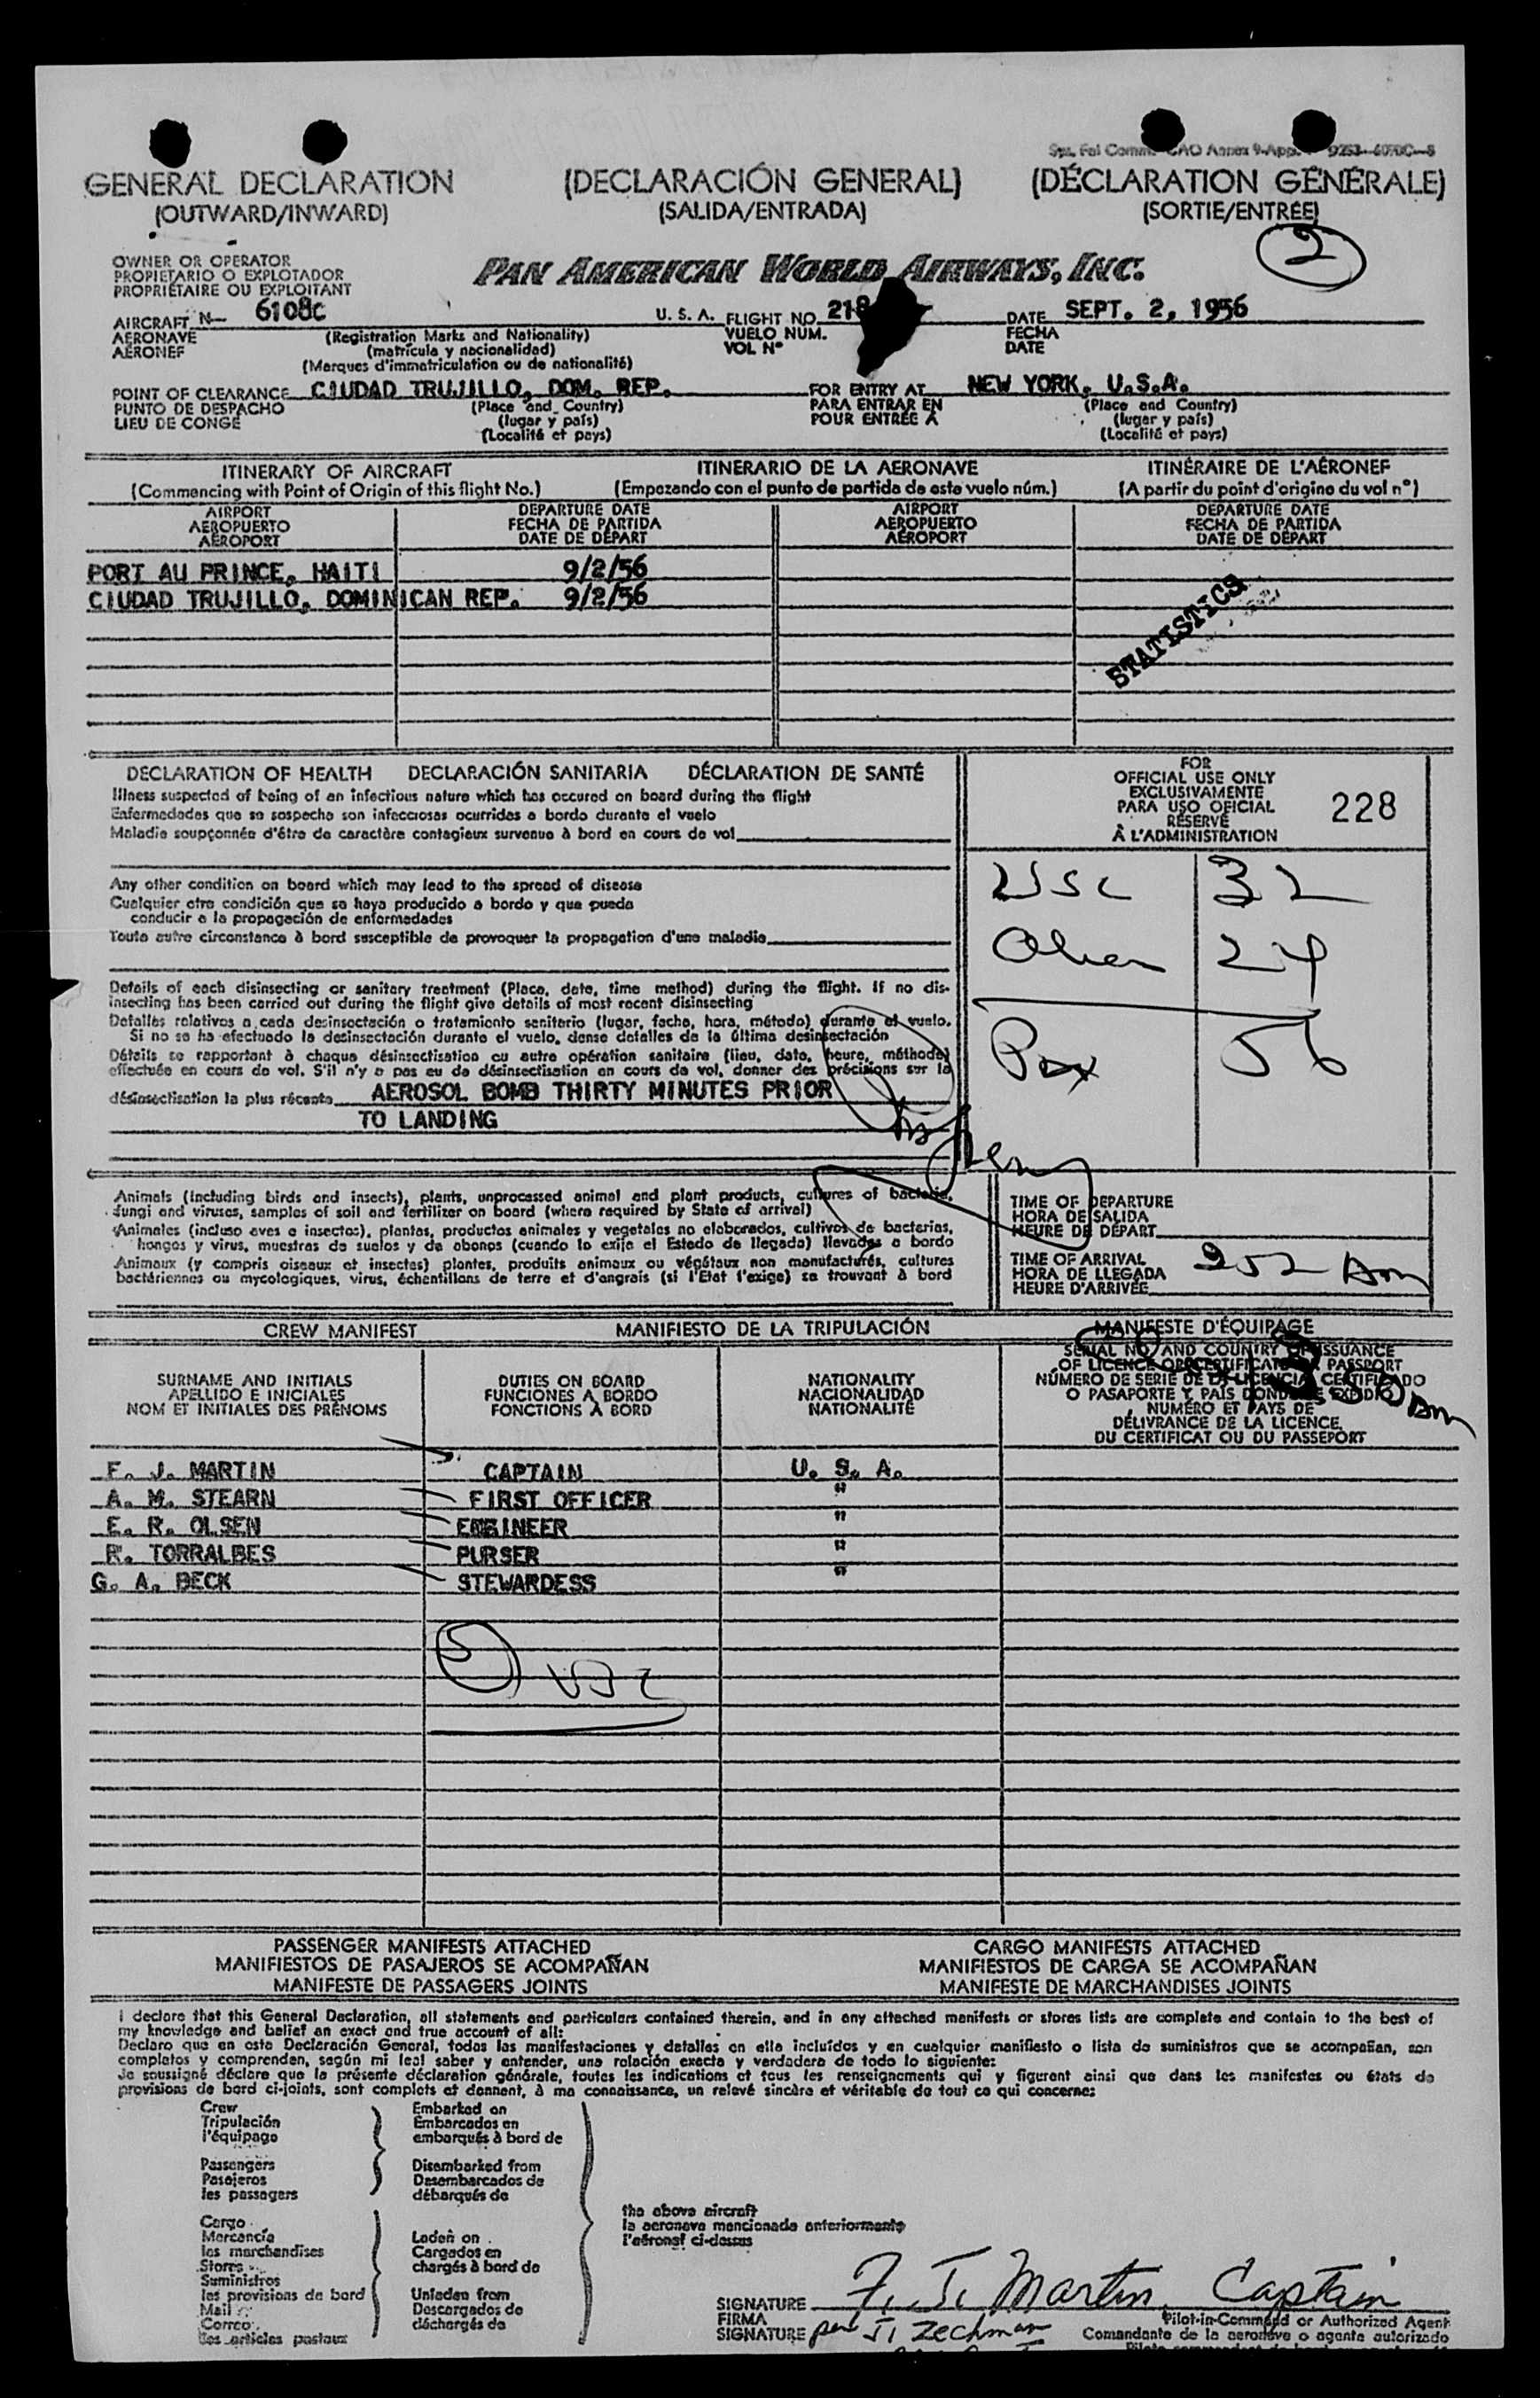 GENERAL DECLARATION (DECLARACIÓN GENERAL) (DÉCLARATION GÉNÉRALE)
(OUTWARD/INWARD) (SALIDA/ENTRADA) (SORTIE/ENTRÉE)
2
OWNER OR OPERATOR
PROPIETARIO O EXPLOTADOR
PROPRIÉTAIRE OU EXPLOITANT
PAN AMERICAN WORLD AIRWAYS, INC.
AIRCRAFT N- 6108C U. S. A. FLIGHT NO. 218 DATE SEPT. 2, 1956
AERONAVE (Registration Marks and Nationality) VUELO NUM. FECHA
AÉRONEF (matrícula y nacionalidad) VOL Nº DATE
(Marques d'immatriculation ou de nationalité)
POINT OF CLEARANCE CIUDAD TRUJILLO, DOM. REP. FOR ENTRY AT NEW YORK, U.S.A.
PUNTO DE DESPACHO (Place and Country) PARA ENTRAR EN (Place and Country)
LIEU DE CONGÉ (lugar y país) POUR ENTRÉE À (lugar y país)
(Localité et pays) (Localité et pays)
ITINERARY OF AIRCRAFT ITINERARIO DE LA AERONAVE ITINÉRAIRE DE L'AÉRONEF
(Commencing with Point of Origin of this flight No.) (Empezando con el punto de partida de este vuelo núm.) (A partir du point d'origine du vol nº)
AIRPORT DEPARTURE DATE AIRPORT DEPARTURE DATE
AEROPUERTO FECHA DE PARTIDA AEROPUERTO FECHA DE PARTIDA
AÉROPORT DATE DE DÉPART AÉROPORT DATE DE DÉPART
PORT AU PRINCE, HAITI 9/2/56
CIUDAD TRUJILLO, DOMINICAN REP. 9/2/56
STATISTICS
DECLARATION OF HEALTH DECLARACIÓN SANITARIA DÉCLARATION DE SANTÉ
Illness suspected of being of an infectious nature which has occured on board during the flight
Enfermedades que se sospecha son infecciosas ocurridas a bordo durante el vuelo
Maladie soupçonnée d'être de caractère contagieux survenue à bord en cours de vol
FOR
OFFICIAL USE ONLY
EXCLUSIVAMENTE
PARA USO OFICIAL
RÉSERVÉ
À L'ADMINISTRATION
228
USC 32
Alien 24
Pax 56
Any other condition on board which may lead to the spread of disease
Cualquier otra condición que se haya producido a bordo y que pueda
conducir a la propagación de enfermedades
Toute autre circonstance à bord susceptible de provoquer la propagation d'une maladie
Details of each disinsecting or sanitary treatment (Place, date, time method) during the flight. If no dis-
insecting has been carried out during the flight give details of most recent disinsecting
Detalles relativos a cada desinsectación o tratamiento sanitario (lugar, fecha, hora, método) durante el vuelo.
Si no se ha efectuado la desinsectación durante el vuelo, dense detalles de la última desinsectación
Détails se rapportant à chaque désinsectisation ou autre opération sanitaire (lieu, date, heure, méthode)
effectuée en cours de vol. S'il n'y a pas eu de désinsectisation en cours de vol, donner des précisions sur la
désinsectisation la plus récente AEROSOL BOMB THIRTY MINUTES PRIOR
TO LANDING
Animals (including birds and insects), plants, unprocessed animal and plant products, cultures of bacteria,
fungi and viruses, samples of soil and fertilizer on board (where required by State of arrival)
Animales (incluso aves e insectos), plantas, productos animales y vegetales no elaborados, cultivos de bacterias,
hongos y virus, muestras de suelos y de abonos (cuando lo exija el Estado de llegada) llevados a bordo
Animaux (y compris oiseaux et insectes) plantes, produits animaux ou végétaux non manufacturés, cultures
bactériennes ou mycologiques, virus, échantillons de terre et d'engrais (si l'Etat l'exige) se trouvant à bord
TIME OF DEPARTURE
HORA DE SALIDA
HEURE DE DÉPART
TIME OF ARRIVAL
HORA DE LLEGADA 952 Am
HEURE D'ARRIVÉE
CREW MANIFEST MANIFIESTO DE LA TRIPULACIÓN MANIFESTE D'ÉQUIPAGE
SURNAME AND INITIALS DUTIES ON BOARD NATIONALITY
APELLIDO E INICIALES FUNCIONES A BORDO NACIONALIDAD
NOM ET INITIALES DES PRÉNOMS FONCTIONS À BORD NATIONALITÉ
SERIAL NO. AND COUNTRY OF ISSUANCE
OF LICENCE OR CERTIFICATE OR PASSPORT
NÚMERO DE SERIE DE LA LICENCIA, CERTIFICADO
O PASAPORTE Y PAÍS DONDE SE EXPIDIÓ
NUMÉRO ET PAYS DE
DÉLIVRANCE DE LA LICENCE,
DU CERTIFICAT OU DU PASSEPORT
F. J. MARTIN CAPTAIN U. S. A.
A. M. STEARN FIRST OFFICER "
E. R. OLSEN ENGINEER "
R. TORRALBES PURSER "
G. A. BECK STEWARDESS "
5 USC
PASSENGER MANIFESTS ATTACHED CARGO MANIFESTS ATTACHED
MANIFIESTOS DE PASAJEROS SE ACOMPAÑAN MANIFIESTOS DE CARGA SE ACOMPAÑAN
MANIFESTE DE PASSAGERS JOINTS MANIFESTE DE MARCHANDISES JOINTS
I declare that this General Declaration, all statements and particulars contained therein, and in any attached manifests or stores lists are complete and contain to the best of
my knowledge and belief an exact and true account of all:
Declaro que en esta Declaración General, todas las manifestaciones y detalles en ella incluídos y en cualquier manifiesto o lista de suministros que se acompañan, son
completos y comprenden, según mi leal saber y entender, una relación exacta y verdadera de todo lo siguiente:
Je soussigné déclare que la présente déclaration générale, toutes les indications et tous les renseignements qui y figurent ainsi que dans les manifestes ou états de
provisions de bord ci-joints, sont complets et donnent, à ma connaissance, un relevé sincère et véritable de tout ce qui concerne:
Crew Embarked on
Tripulación Embarcados en
l'équipage embarqués à bord de
Passengers Disembarked from
Pasajeros Desembarcados de
les passagers débarqués de
the above aircraft
la aeronave mencionada anteriormente
l'aéronef ci-dessus
Cargo
Mercancía Laden on
les marchandises Cargados en
Stores chargés à bord de
Suministros
les provisions de bord Unladen from
Mail Descargados de
Correo déchargés de
les articles postaux
SIGNATURE F. J. Martin, Captain
FIRMA Pilot-in-Command or Authorized Agent
SIGNATURE per J. Zechman Comandante de la aeronave o agente autorizado